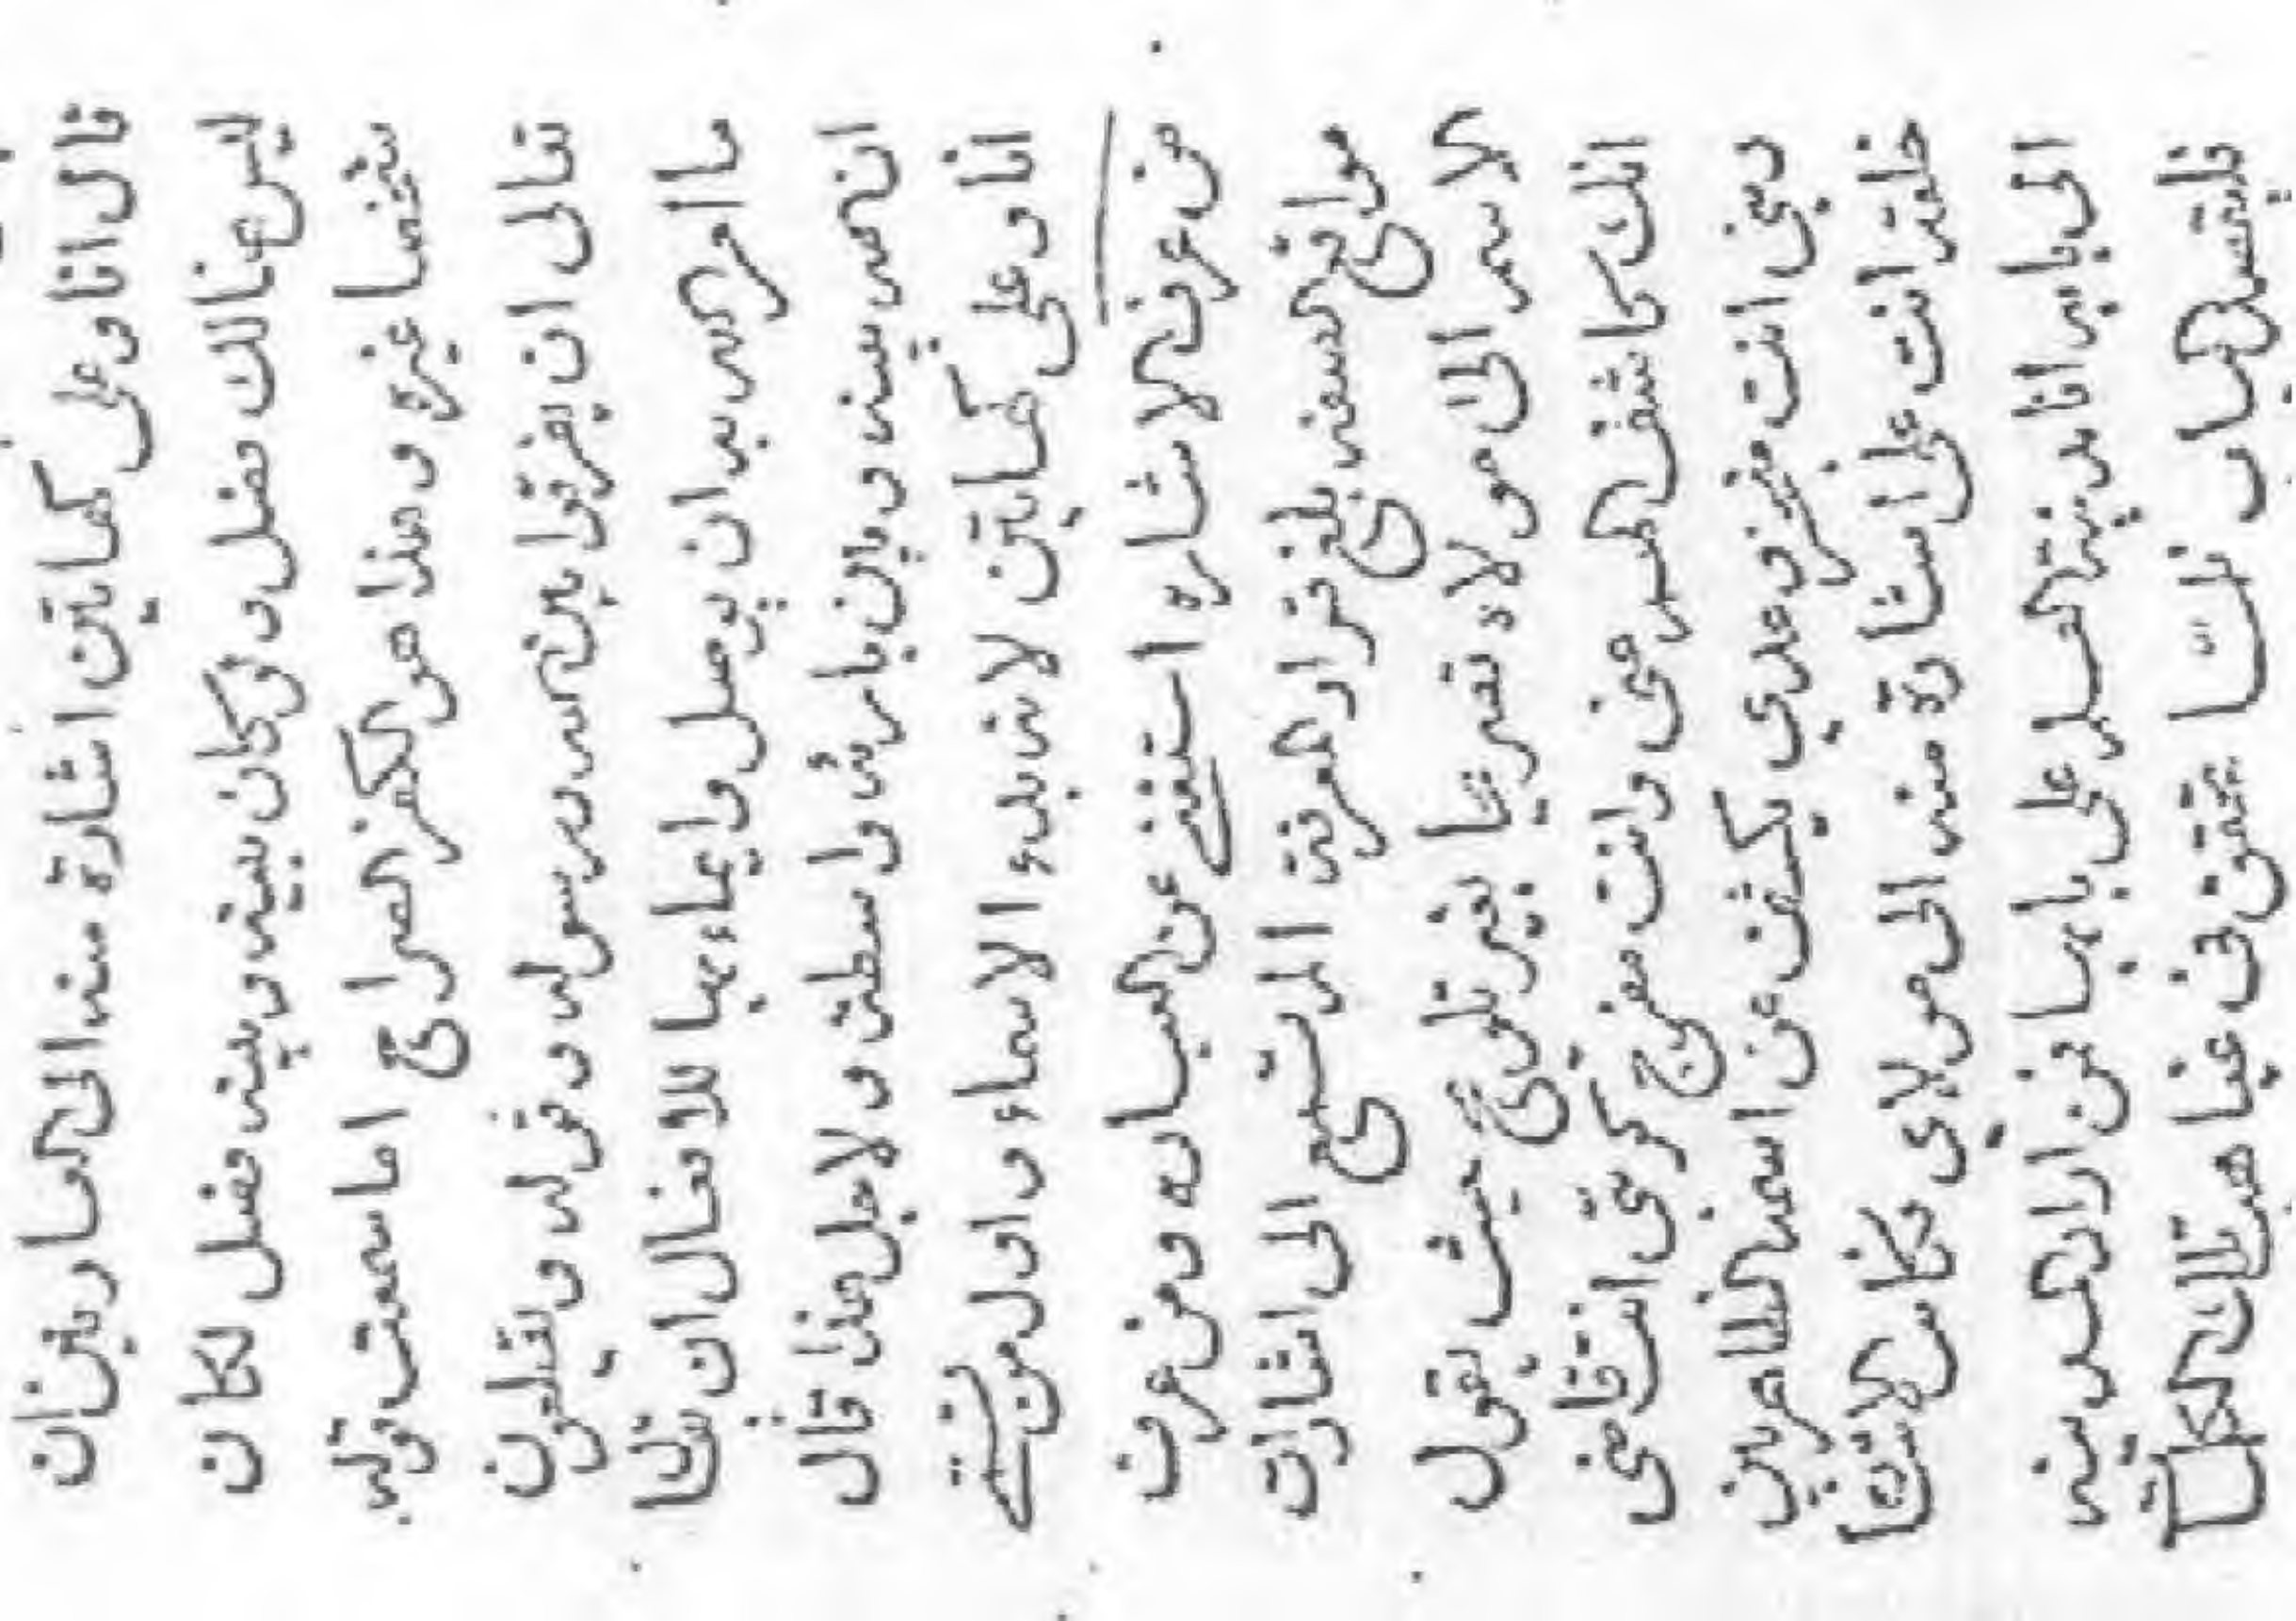 قال انا وعلى كهاتين اشارة منه الى العارفين ان
ليس هنالك فصل ولو كان بينه وبينه فصل لكان
شخصا غيره وهذا هو الكفر الصراح اما سمعت قوله
تعالى ان يفرقوا بين الله ورسوله وقوله ويقطعون
ما امر الله به ان يوصل وايماءهما للافعال ان
انه بينه وبين باريه واسطة ولاجل هذا قال
انا وعلى كهاتين لانه بدء الاسماء واول من
من عرف الاشاره استغنى عن العباره ومن عرف
مواقع الصفه بلغ قرار المعرفة الم تسمع الى اشارات
الاسم الى مولاه تصريحا بغير تلويح حيث يقول
انك كاشف الهم عنى وانت مفرج كربتى انت قاضى
دينى انت منجز وعدي يكشف عن اسمه الظاهر بين
خلقه انت على اشارة منه الى مولاى فكاس الاشارة
الى بابه انا مدينة العلم على بابها فمن اراد المدينه
فليقصد الباب